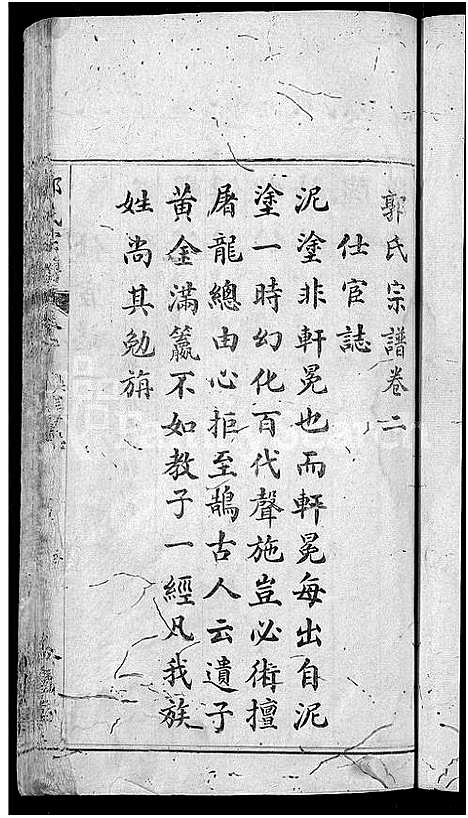 郭氏宗譜卷二
仕宦誌
泥塗非軒冕也而軒冕每出自泥
塗一時幻化百代聲施豈必術擅
屠龍總由心拒至鵲古人云遺子
黃金滿籯不如教子一經凡我族
姓尚其勉旃